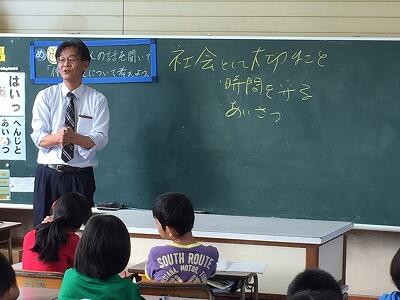 め
の話を聞いて
について考えよう。
社会として大切なこと
・時間を守る
・あいさつ
はいっ
へんじと
あいさつ
SOUTH ROUTE
INDIANA MOTOR